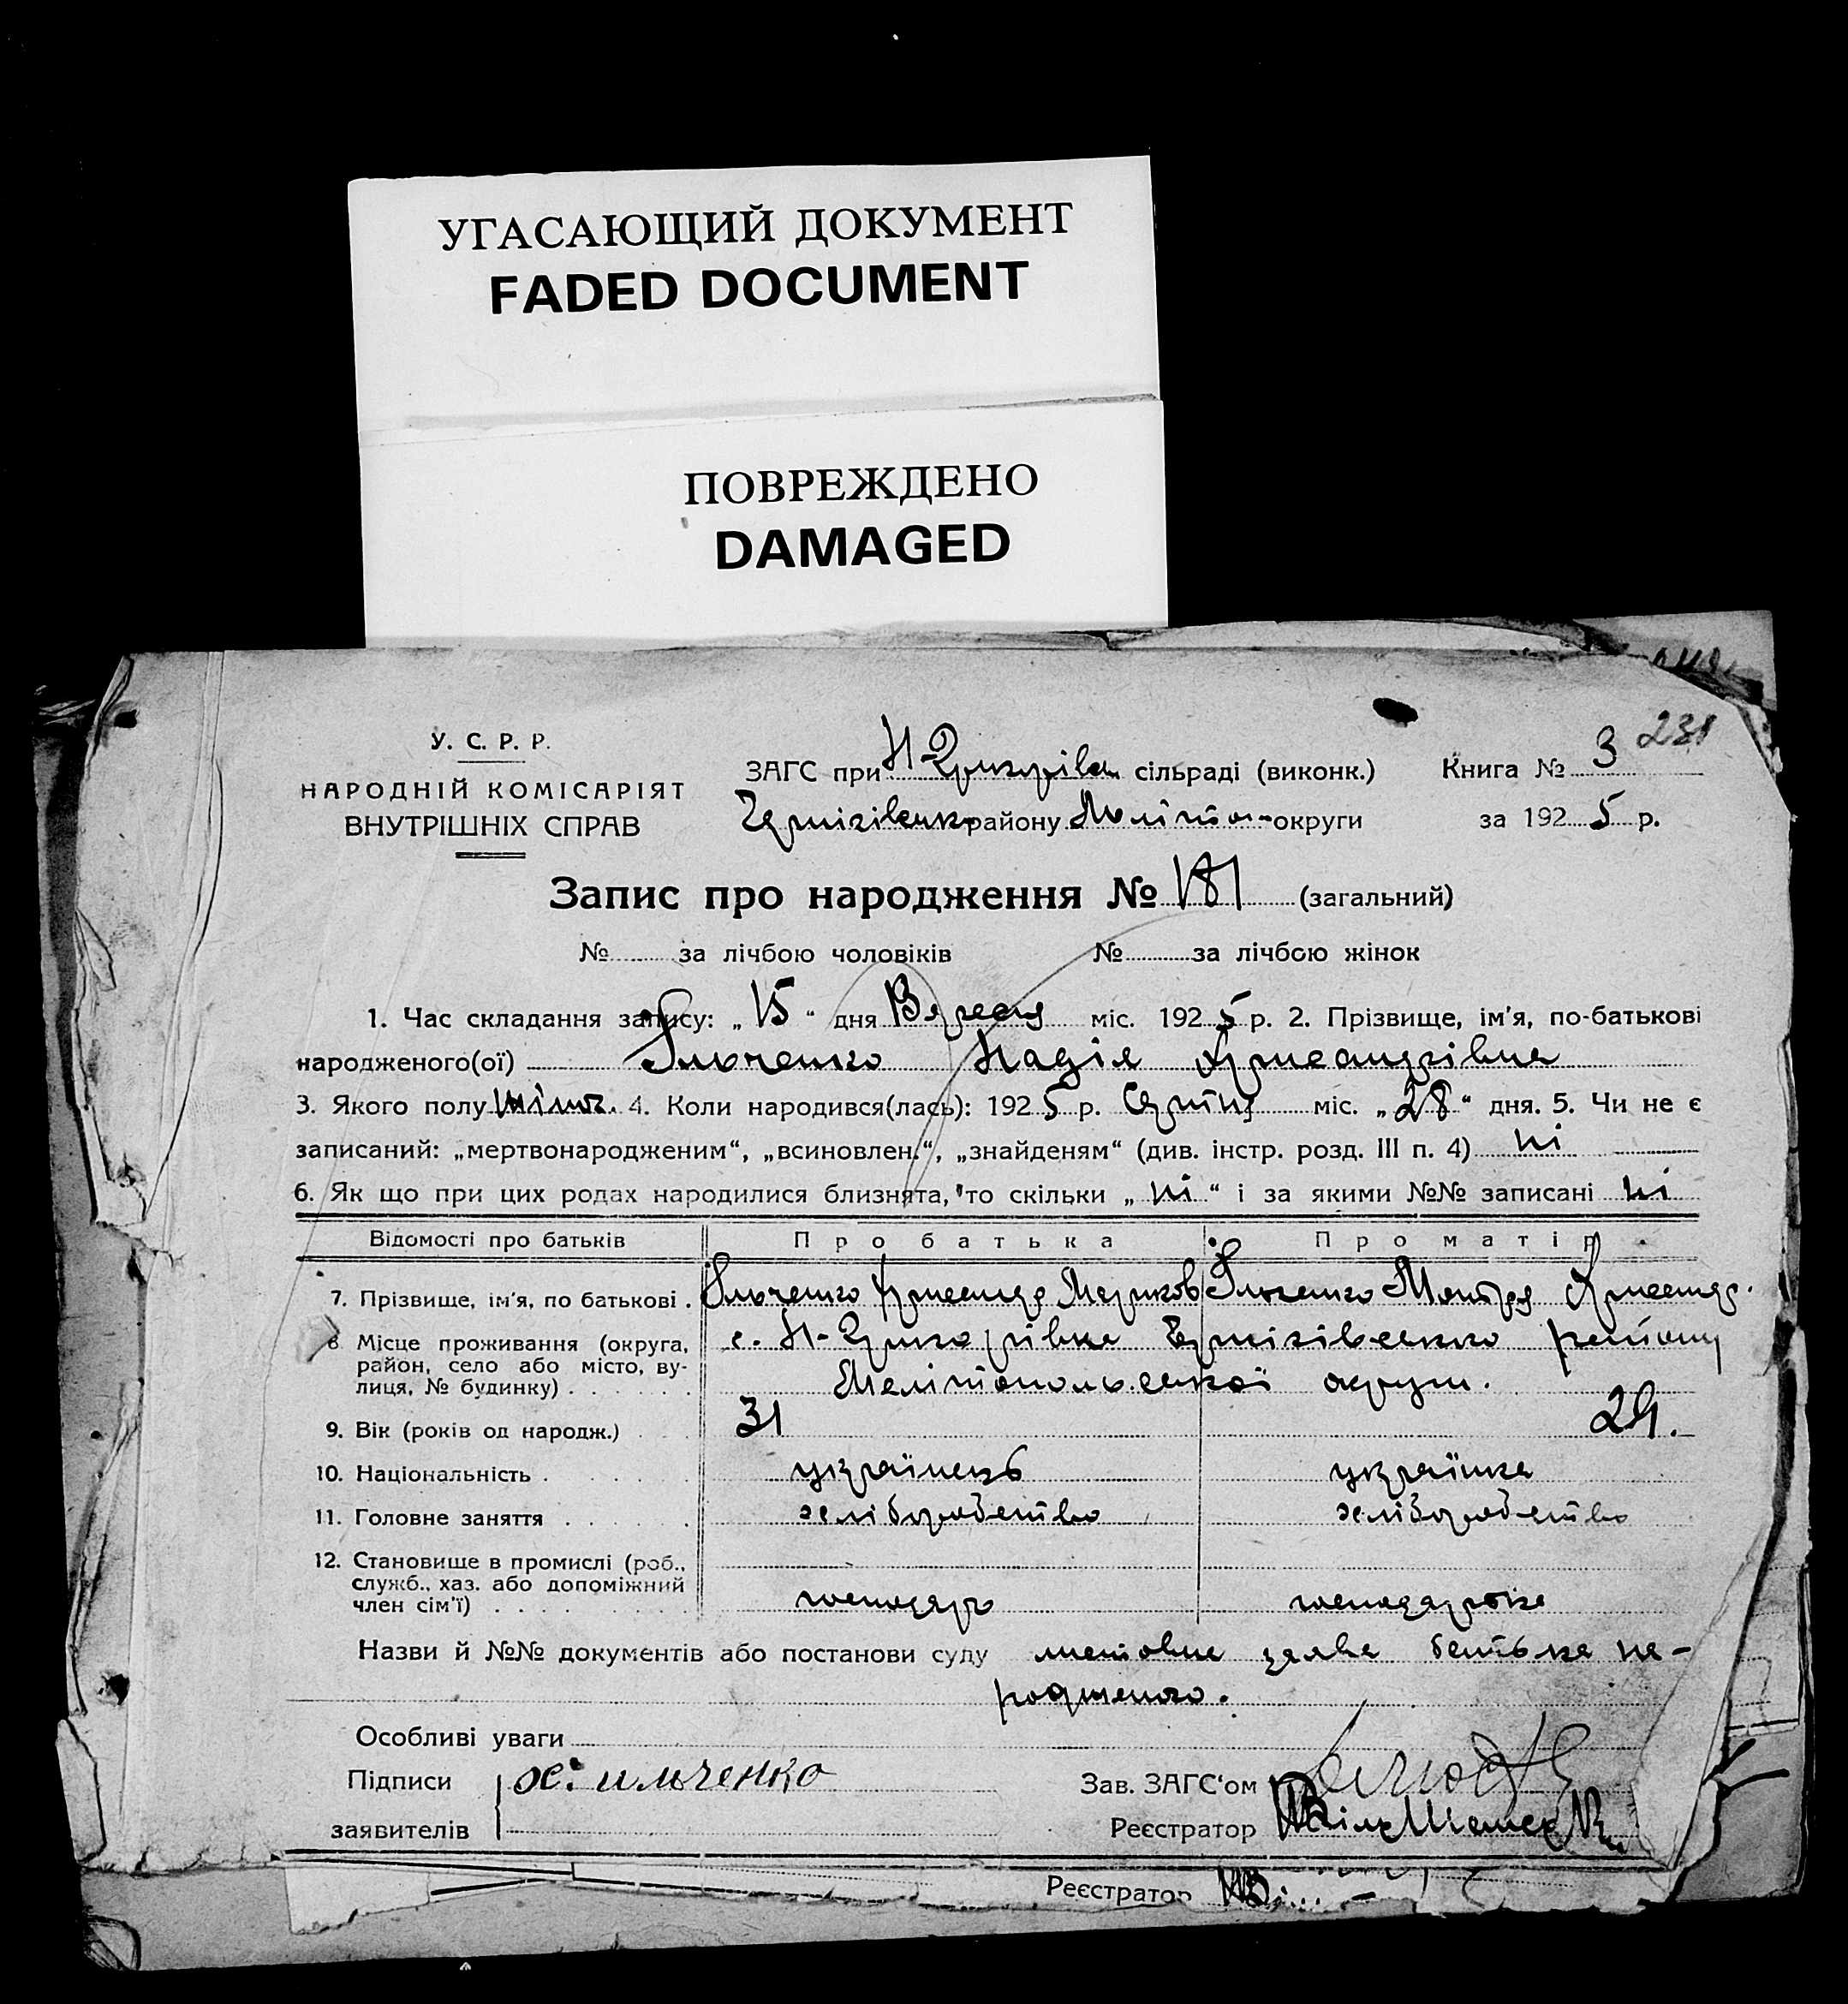 УГАСАЮЩИЙ ДОКУМЕНТ
FADED DOCUMENT
ПОВРЕЖДЕНО
DAMAGED
231
У. С. Р. Р.
НАРОДНІЙ КОМІСАРІЯТ
ВНУТРІШНІХ СПРАВ
ЗАГС при сільраді (виконк.) Книга № 3
району округи за 192 5 р.
Запис про народження № 181 (загальний)
№ за лічбою чоловіків № за лічбою жінок
1. Час складання запису: „ 15 “ дня міс. 192 5 р. 2. Прізвище, ім'я, по-батькові
народженого(ої) Ільченко Надія
3. Якого полу 4. Коли народився(лась): 192 5 р. міс. „ 28 “ дня. 5. Чи не є
записаний: „мертвонародженим“, „всиновлен.“, „знайденям“ (див. інстр. розд. III п. 4) ні
6. Як що при цих родах народилися близнята, то скільки „ ні “ і за якими №№ записані ні
Відомості про батьків Про батька Про матір
7. Прізвище, ім'я, по батькові . Ільченко Ільченко
8 Місце проживання (округа, с.
район, село або місто, ву-
лиця, № будинку) . . . . . . Мелітопольської округи.
9. Вік (років од народж.) . . . 31 29.
10. Національність . . . . . . українець українка
11. Головне заняття . . . . . . хліборобство хліборобство
12. Становище в промислі (роб.,
служб., хаз. або допоміжний
член сім'ї) . . . . . . . . господарь господарька
Назви й №№ документів або постанови суду заява батька на-
родженого.
Особливі уваги
Підписи ильченко Зав. ЗАГС'ом
заявителів Реєстратор
Реєстратор